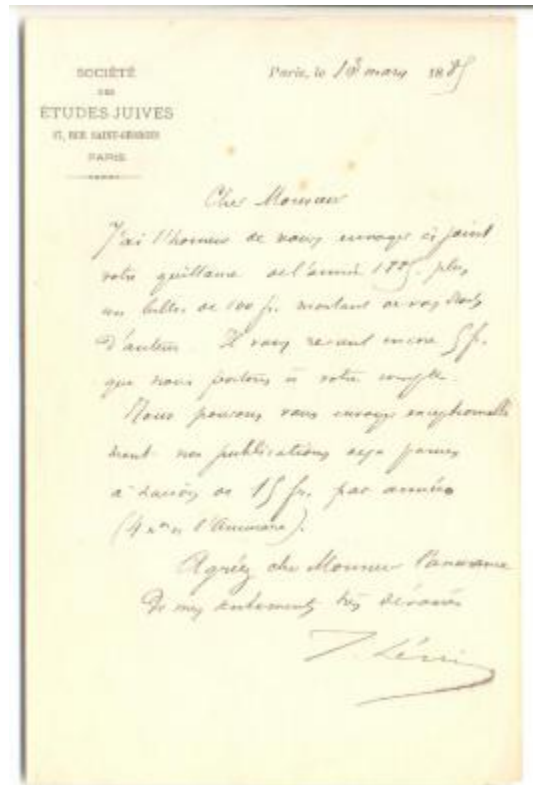 SOCIÉTÉ
DES
ÉTUDES JUIVES
17, RUE SAINT-GEORGES
PARIS
Paris, le 18 mars 1885
Cher Monsieur
J'ai l'honneur de vous envoyer ci joint
votre quittance de l'année 1885 plus
un billet de 100 fr. montant de vos droits
d'auteur. Il vous revient encore 5 fr.
que nous portons à votre compte.
Nous pouvons vous envoyer exceptionnelle
ment nos publications déjà parues
à raison de 15 fr. par année
(4 nos et l'Annuaire).
Agréez cher Monsieur l'assurance
de mes sentiments très dévoués
Lévi